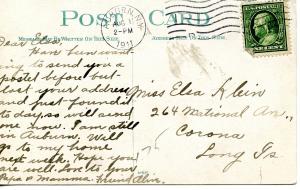 POST CARD
MESSAGE MAY BE WRITTEN ON THIS SIDE
ADDRESS ONLY THIS SIDE
2-PM
1911
U.S. POSTAGE
Dear Elsa:
Have been want
ing to send you a
postal before but
lost your address
and just found it
to day, so will send
one now. I am still
in Auburn. Will
go to my home
next week. Hope you
are well. Love to your
Papa & Mamma.
Miss Elsa Klein
264 National Av,
Corona
Long Is